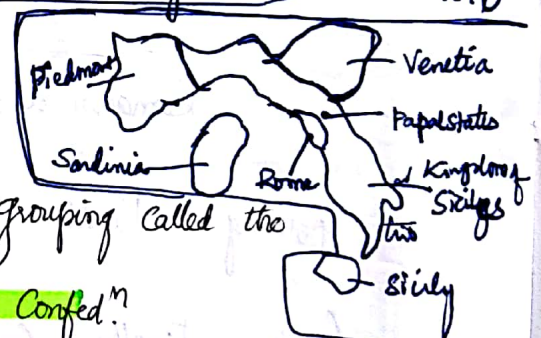 Piedmont
Venetia
Papal States
Sardinia
Rome
Kingdom of
two Sicilies
grouping called the
Sicily
Confed.n